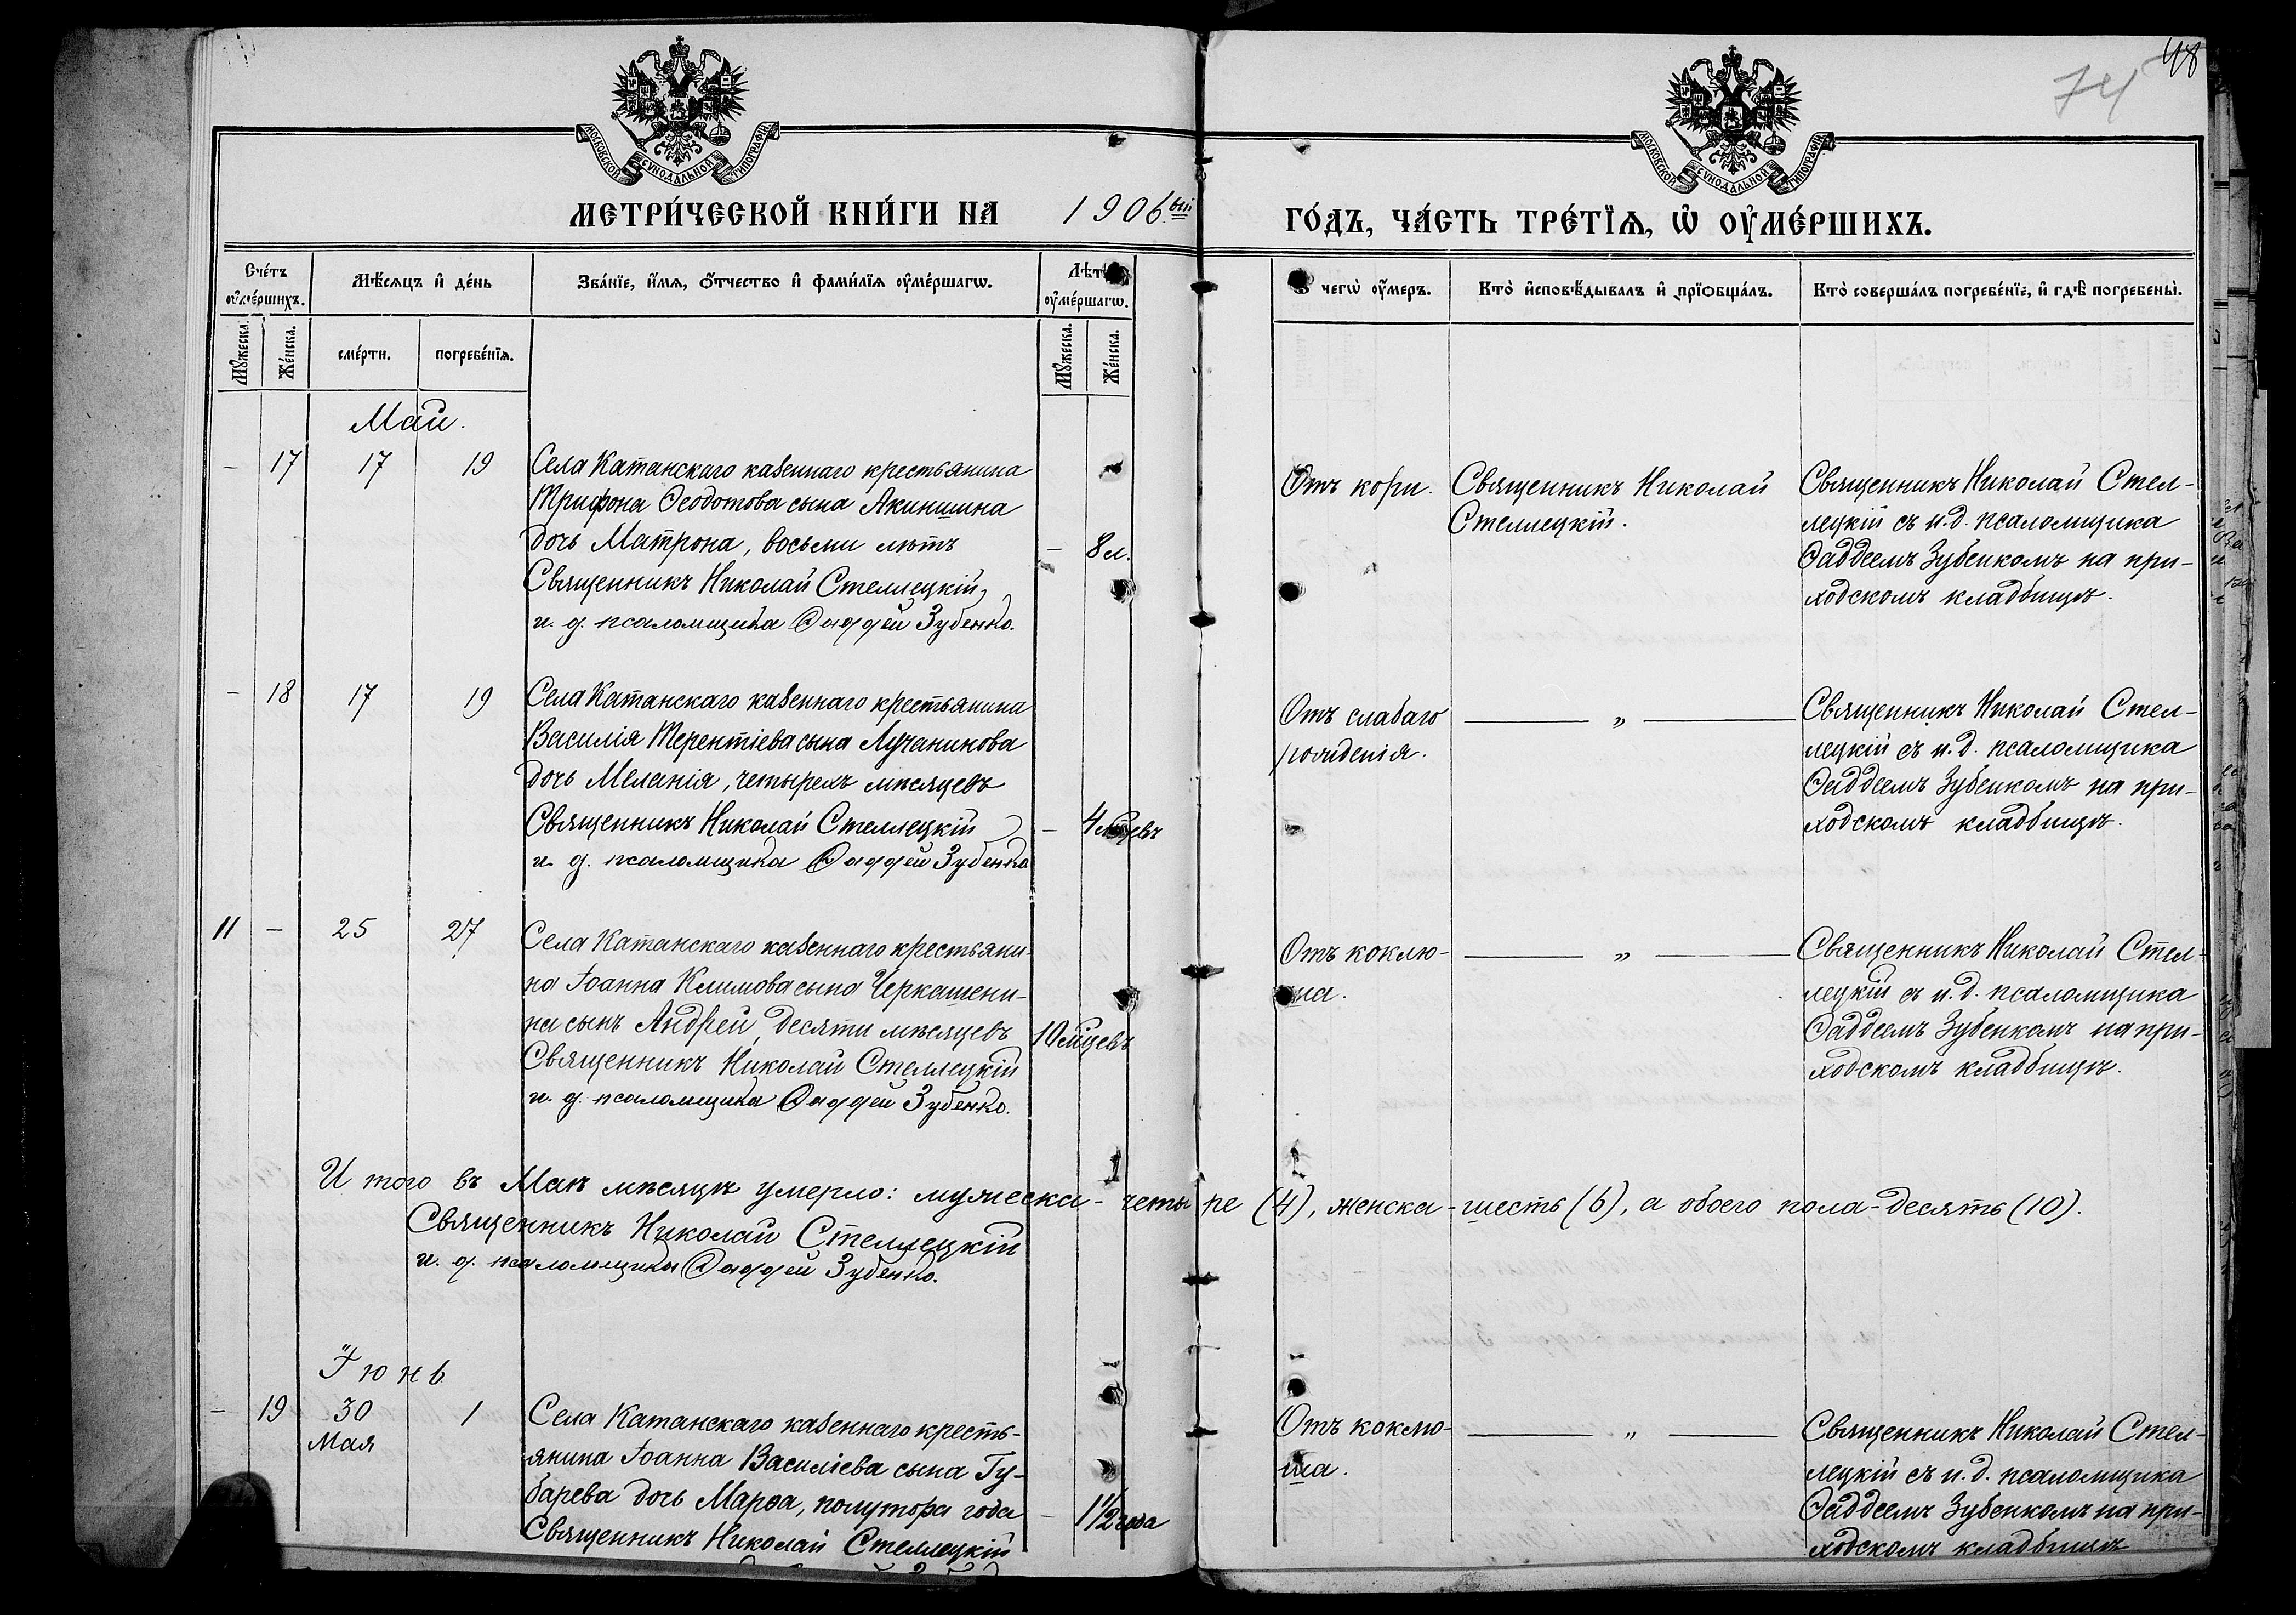 48
74
МОСКОВСКОЙ СѴНОДАЛЬНОЙ ТИПОГРАФІИ
МОСКОВСКОЙ СѴНОДАЛЬНОЙ ТИПОГРАФІИ
МЕТРИ́ЧЕСКОЙ КНИ́ГИ НА 1906.ый ГО́ДЪ, ЧА́СТЬ ТРЕ́ТЇѦ, Ѽ ОУ҆МЕ́РШИХЪ.
Сче́тъ оу҆ме́ршихъ.
Мѣ́сяцъ и҆ де́нь
Зва́нїе, и҆́мя, ѻ҆́тчество и҆ фами́лїя оу҆ме́ршагѡ.
Лѣт оу҆ме́ршагѡ.
чегѡ̀ оу҆́меръ.
Кто̀ и҆сповѣ́дывалъ и҆ прїѻбща́лъ.
Кто̀ соверша́лъ погребе́нїе, и҆ гдѣ̀ погребены̀.
Мꙋ́жеска.
Же́нска.
сме́рти.
погребе́нїя.
Мꙋ́жеска.
Же́нска.
Май.
– 17 17 19 Села Катанскаго казеннаго крестьянина
Трифона Ѳеодотова сына Акиншина
дочь Матрона, восьми лѣтъ – 8 л.
Священникъ Николай Стеллецкій
и. д. псаломщика Ѳаддей Зубенко.
Отъ кори.
Священникъ Николай
Стеллецкій.
Священникъ Николай Стел-
лецкій съ и.д. псаломщика
Ѳаддеемъ Зубенкомъ на при-
ходскомъ кладбищѣ.
– 18 17 19 Села Катанскаго казеннаго крестьянина
Василія Терентіева сына Лучанинова
дочь Меланія, четырехъ мѣсяцевъ
Священникъ Николай Стеллецкій – 4 мѣсяцевъ
и. д. псаломщика Ѳаддей Зубенко
Отъ слабаго
рожденія.
— „ —
Священникъ Николай Стел-
лецкій съ и.д. псаломщика
Ѳаддеемъ Зубенкомъ на при-
ходскомъ кладбищѣ.
11 – 25 27 Села Катанскаго казеннаго крестьяни-
на Іоанна Климова сына Черкашени-
на сынъ Андрей, десяти мѣсяцевъ 10 мцевъ
Священникъ Николай Стеллецкій
и. д. псаломщика Ѳаддей Зубенко.
Отъ коклю-
ша.
— „ —
Священникъ Николай Стел-
лецкій съ и.д. псаломщика
Ѳаддеемъ Зубенкомъ на при-
ходскомъ кладбищѣ.
Итого въ Маѣ мѣсяцѣ умерло: мужеска - четыре (4), женска - шесть (6), а обоего пола - десять (10).
Священникъ Николай Стеллецкій
и. д. псаломщика Ѳаддей Зубенко.
Іюнь
– 19 30 1 Села Катанскаго казеннаго кресть-
Мая
янина Іоанна Василіева сына Гу-
барева дочь Марѳа, полутора года – 1 1/2 года
Священникъ Николай Стеллецкій
Отъ коклю-
ша.
— „ —
Священникъ Николай Стел-
лецкій съ и.д. псаломщика
Ѳаддеемъ Зубенкомъ на при-
ходскомъ кладбищѣ